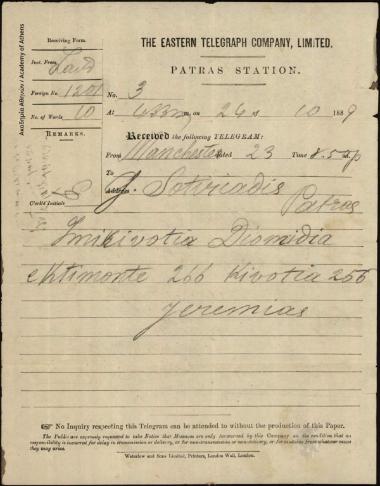 Receiving Form.
Inst. From
Foreign No. 1201
No. of Words 10
REMARKS.
Clerk's Initials
Ακαδημία Αθηνών / Academy of Athens
THE EASTERN TELEGRAPH COMPANY, LIMITED.
PATRAS STATION.
No. 3
At m., on 24 10 1889
Received the following TELEGRAM:
From Manchester dated 23 Time 8.50 p
To
Address J. Sotiriadis
Patras
Imikivotia Diomidia
ektimonte 266 Kivotia 256
Jeremias
No Inquiry respecting this Telegram can be attended to without the production of this Paper.
The Public are expressly requested to take Notice that Messages are only forwarded by this Company on the condition that no
responsibility is incurred for delay in transmission or delivery, or for non-transmission or non-delivery, or for mistakes from whatever cause
they may arise.
Waterlow and Sons Limited, Printers, London Wall, London.